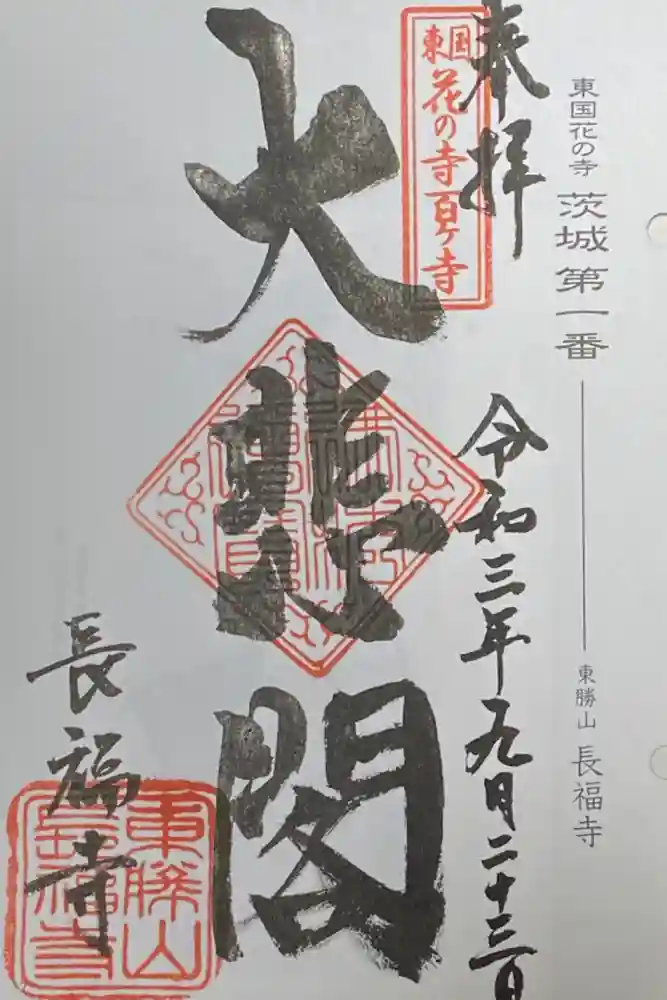 東国花の寺 茨城第一番
東勝山 長福寺
奉拝
東国
花の寺百ヶ寺
令和三年九月二十三日
大悲閣
長福寺
東勝山
長福寺